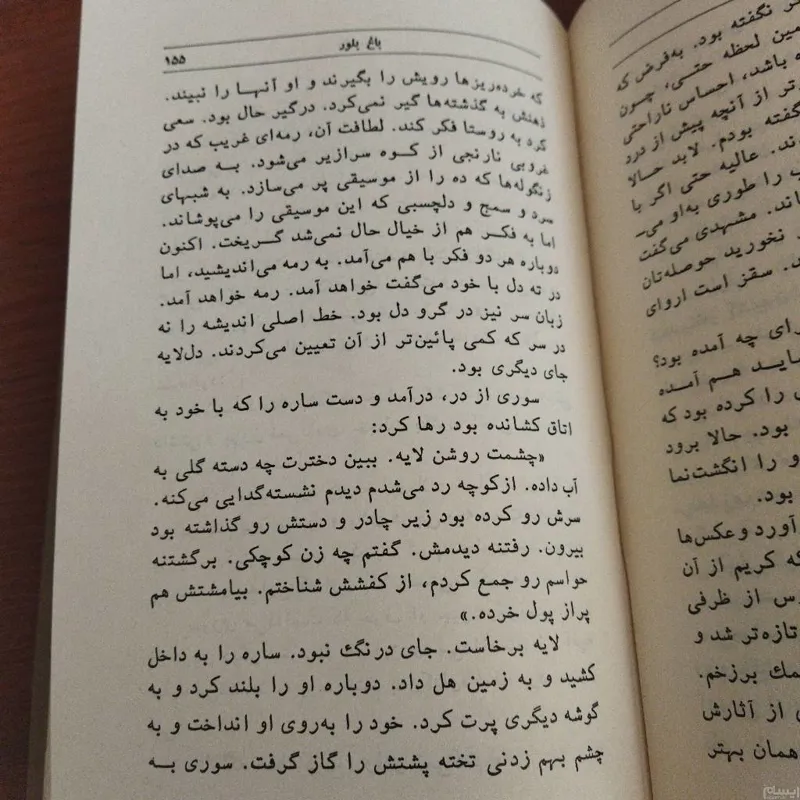 باغ بلور
۱۵۵
که خرده‌ریزها رویش را بگیرند و او آنها را نبیند.
ذهنش به گذشته‌ها گیر نمی‌کرد. درگیر حال بود. سعی
کرد به روستا فکر کند. لطافت آن، رمه‌ای غریب که در
غروبی نارنجی از کوه سرازیر می‌شود. به صدای
زنگوله‌ها که ده را از موسیقی پر می‌سازد. به شبهای
سرد و سمج و دلچسبی که این موسیقی را می‌پوشاند.
اما به فکر هم از خیال حال نمی‌شد گریخت. اکنون
دوباره هر دو فکر با هم می‌آمد. به رمه می‌اندیشید، اما
در ته دل با خود می‌گفت خواهد آمد. رمه خواهد آمد.
زبان سر نیز در گرو دل بود. خط اصلی اندیشه را نه
در سر که کمی پائین‌تر از آن تعیین می‌کردند. دل‌لایه
جای دیگری بود.
سوری از در، درآمد و دست ساره را که با خود به
اتاق کشانده بود رها کرد:
«چشمت روشن لایه. ببین دخترت چه دسته گلی به
آب داده. ازکوچه رد می‌شدم دیدم نشسته‌گدایی می‌کنه.
سرش رو کرده بود زیر چادر و دستش رو گذاشته بود
بیرون. رفتنه دیدمش. گفتم چه زن کوچکی. برگشتنه
حواسم رو جمع کردم، از کفشش شناختم. بیامشتش هم
پراز پول خرده.»
لایه برخاست. جای درنگ نبود. ساره را به داخل
کشید و به زمین هل داد. دوباره او را بلند کرد و به
گوشه دیگری پرت کرد. خود را به‌روی او انداخت و به
چشم بهم زدنی تخته پشتش را گاز گرفت. سوری به
ر نگفته بود. به‌فرض که
مین لحظه حتی، چون
ه باشد، احساس ناراحتی
تر از آنچه پیش از درد
گفته بودم. لابد حالا
ند. عالیه حتی اگر با
ب را طوری به‌او می‌ـ
اند. مشهدی می‌گفت
نخورید حوصله‌تان
د. سقز است اروای
رای چه آمده بود؟
ساید هم آمده
ی را کرده بود که
بود. حالا برود
و را انگشت‌نما
بود.
آورد و عکس‌ها
که کریم از آن
رس از ظرفی
تازه‌تر شد و
مك برزخم.
ی از آثارش
همان بهتر
ایسام